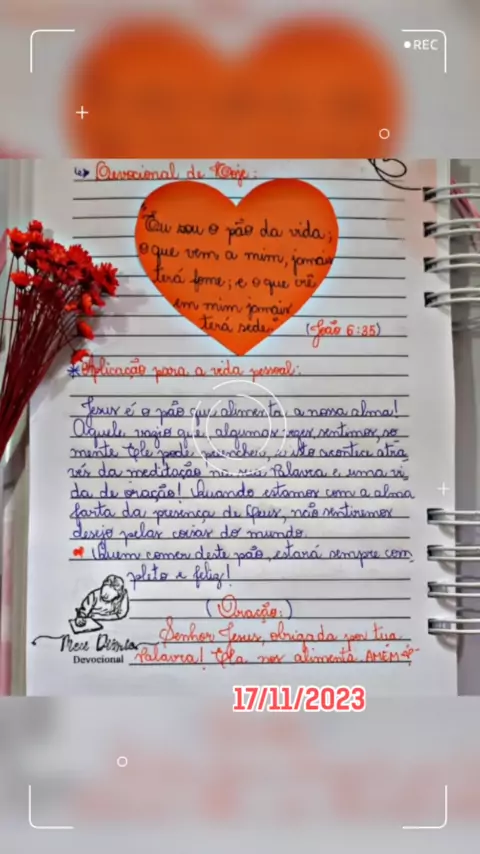 REC
Devocional de Hoje:
"Eu sou o pão da vida;
o que vem a mim, jamais
terá fome; e o que crê
em mim jamais
terá sede."
(João 6:35)
*Aplicação para a vida pessoal:
Jesus é o pão que alimenta a nossa alma!
Aquele vazio que algumas vezes sentimos, so
mente Ele pode preencher, e isto acontece atra
vés da meditação na sua Palavra e uma vi
da de oração! Quando estamos com a alma
farta da presença de Deus, não sentiremos
desejo pelas coisas do mundo.
Quem comer deste pão, estará sempre com_
pleto e feliz!
(Oração:)
Senhor Jesus, obrigada por tua
Palavra! Ela nos alimenta. AMÉM
Meu Diário
Devocional
17/11/2023